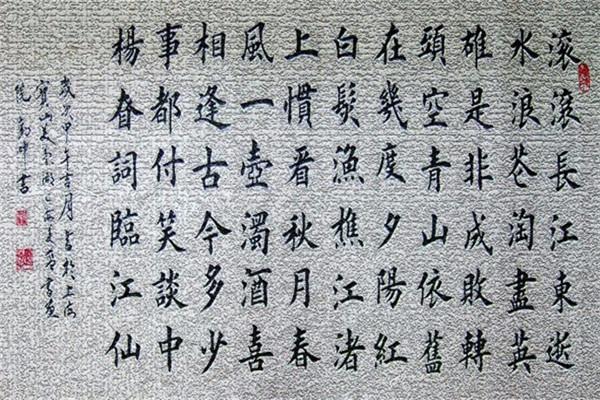 滾滾長江東逝
水浪花淘盡英
雄是非成敗轉
頭空青山依舊
在幾度夕陽紅
白髮漁樵江渚
上慣看秋月春
風一壺濁酒喜
相逢古今多少
事都付笑談中
楊眘詞臨江仙
歲次甲午吉月書於上海
寶山美蘭湖
書